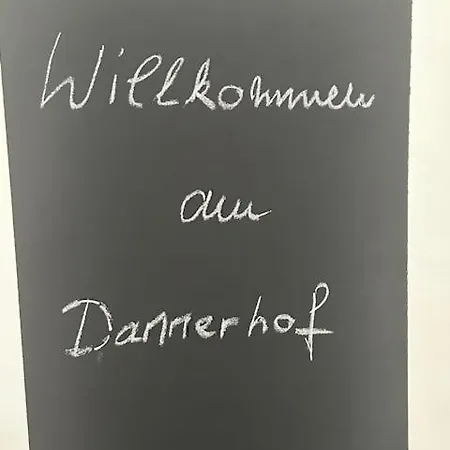 Willkommen
am
Dannerhof